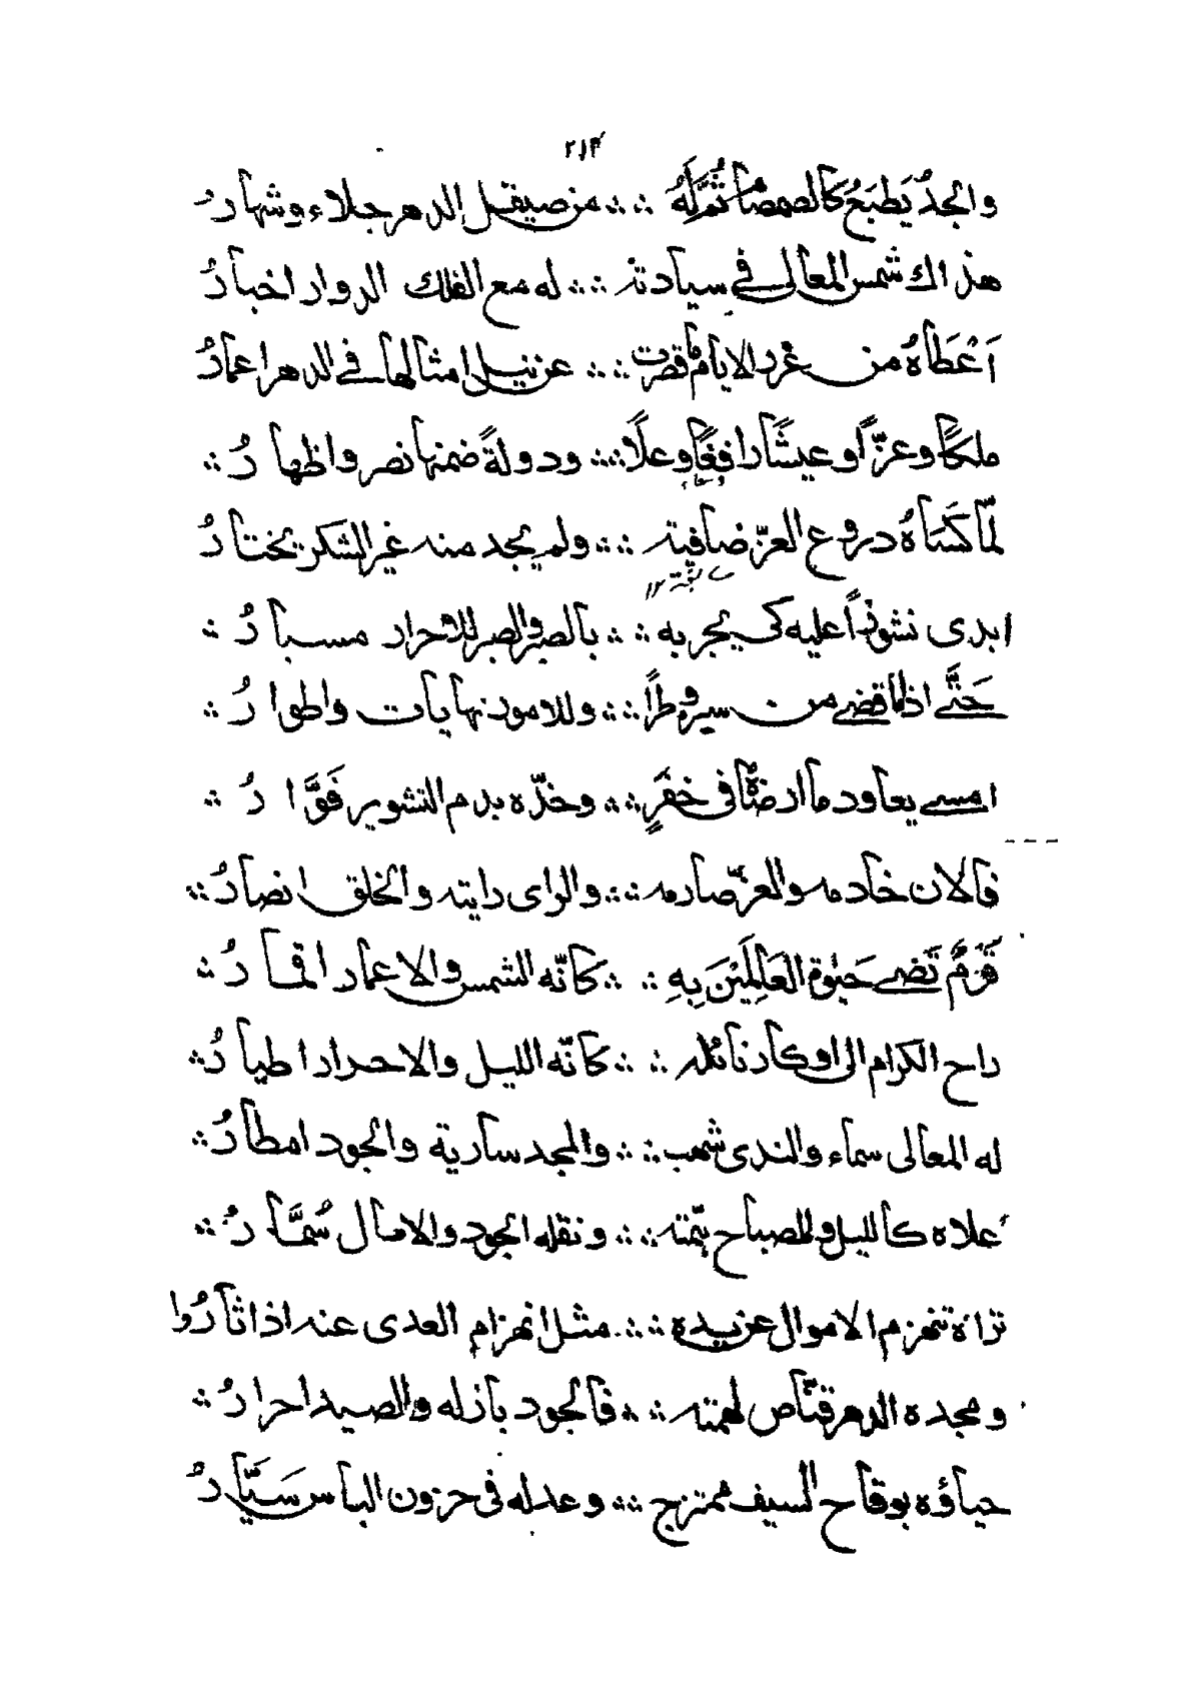 ٢١٣
والجدُّ يَطبَعُ كالصمصام ثُمَّ لَهُ ∴ من صيقل الدهر جلاء وشهارُ
هذاك شمس المعالى في سيادته ∴ له مع الفلك الدوار اخبارُ
اَعْطَاهُ من غرر الايام ما قصرت ∴ عن نيل امثالها في الدهر اعمارُ
ملكًا وعزّاً وعيشًا رافغًا وعلًا ∴ ودولةً ضمنها نصر واظهارُ ∴
لمّا كَسَاهُ دروع العزّ ضافية ∴ ولم يجد منه غير الشكر يختارُ
ابدى نشوزاً عليه كى يجربه ∴ بالصبر والصبر للاحرار مسبارُ ∴
حَتَّى اذا ما قضى من سيره وطراً ∴ وللامور نهايات واطوارُ ∴
امسى يعاود ما ارضاهُ فى خفَرٍ ∴ وخدّه بدم التشوير فَوَّارُ ∴
فالان خادمه والعزّ صارمه ∴ والراى رايته والخلق انصارُ ∴
قَرْمٌ تَضى حيٰوة العَالِمَيْنَ بِهِ ∴ كانّه الشمس والاعمار اقمارُ ∴
راح الكرام الى اوكار نائله ∴ كانّه الليل والاحرار اطيارُ ∴
له المعالى سماء والندى شهب ∴ والمجد سارية والجود امطارُ ∴
علاه كالليل وللصباح بِّمته ∴ ونقله الجود والامال سُمَّارُ ∴
تراه تنهزم الاموال عن يده ∴ مثل انهزام العدى عنه اذا ثارُوا
ومجده الدهر قنّاص لهمته ∴ فالجود بازله والصيد احرارُ ∴
حياؤه بوقاح السيف ممتزج ∴ وعدله فى حزون الباس سَيَّارُ